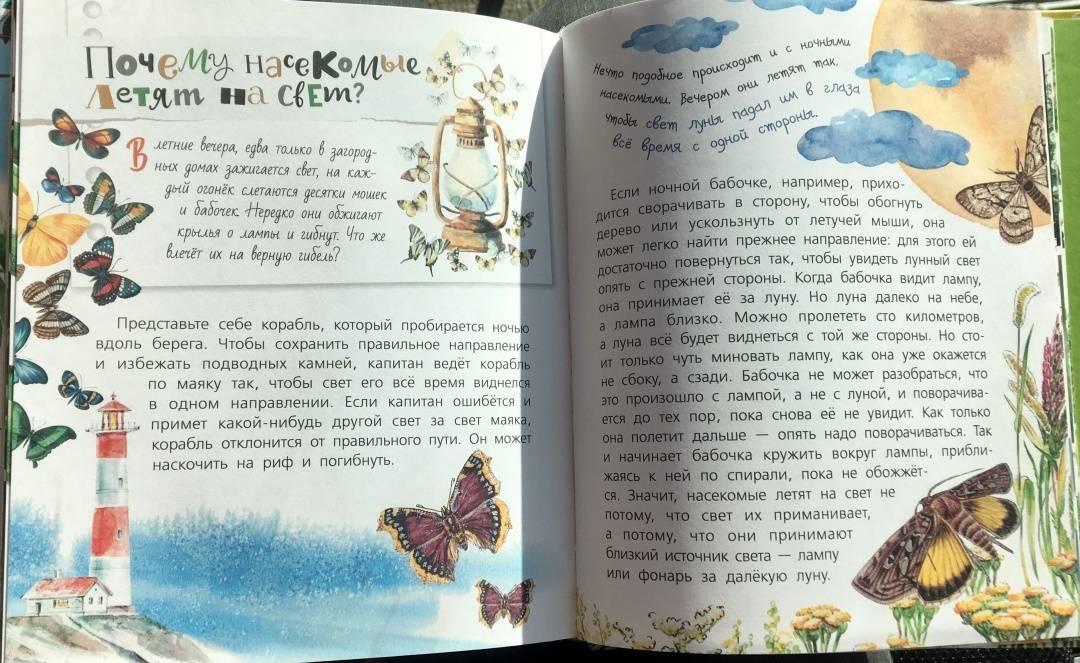 Почему насекомые
летят на свет?
В летние вечера, едва только в загород-
ных домах зажигается свет, на каж-
дый огонёк слетаются десятки мошек
и бабочек. Нередко они обжигают
крылья о лампы и гибнут. Что же
влечёт их на верную гибель?
Представьте себе корабль, который пробирается ночью
вдоль берега. Чтобы сохранить правильное направление
и избежать подводных камней, капитан ведёт корабль
по маяку так, чтобы свет его всё время виднелся
в одном направлении. Если капитан ошибётся и
примет какой-нибудь другой свет за свет маяка,
корабль отклонится от правильного пути. Он может
наскочить на риф и погибнуть.
Нечто подобное происходит и с ночными
насекомыми. Вечером они летят так,
чтобы свет луны падал им в глаза
всё время с одной стороны.
Если ночной бабочке, например, прихо-
дится сворачивать в сторону, чтобы обогнуть
дерево или ускользнуть от летучей мыши, она
может легко найти прежнее направление: для этого ей
достаточно повернуться так, чтобы увидеть лунный свет
опять с прежней стороны. Когда бабочка видит лампу,
она принимает её за луну. Но луна далеко на небе,
а лампа близко. Можно пролететь сто километров,
а луна всё будет виднеться с той же стороны. Но сто-
ит только чуть миновать лампу, как она уже окажется
не сбоку, а сзади. Бабочка не может разобраться, что
это произошло с лампой, а не с луной, и поворачива-
ется до тех пор, пока снова её не увидит. Как только
она полетит дальше — опять надо поворачиваться. Так
и начинает бабочка кружить вокруг лампы, прибли-
жаясь к ней по спирали, пока не обожжёт-
ся. Значит, насекомые летят на свет не
потому, что свет их приманивает,
а потому, что они принимают
близкий источник света — лампу
или фонарь за далёкую луну.